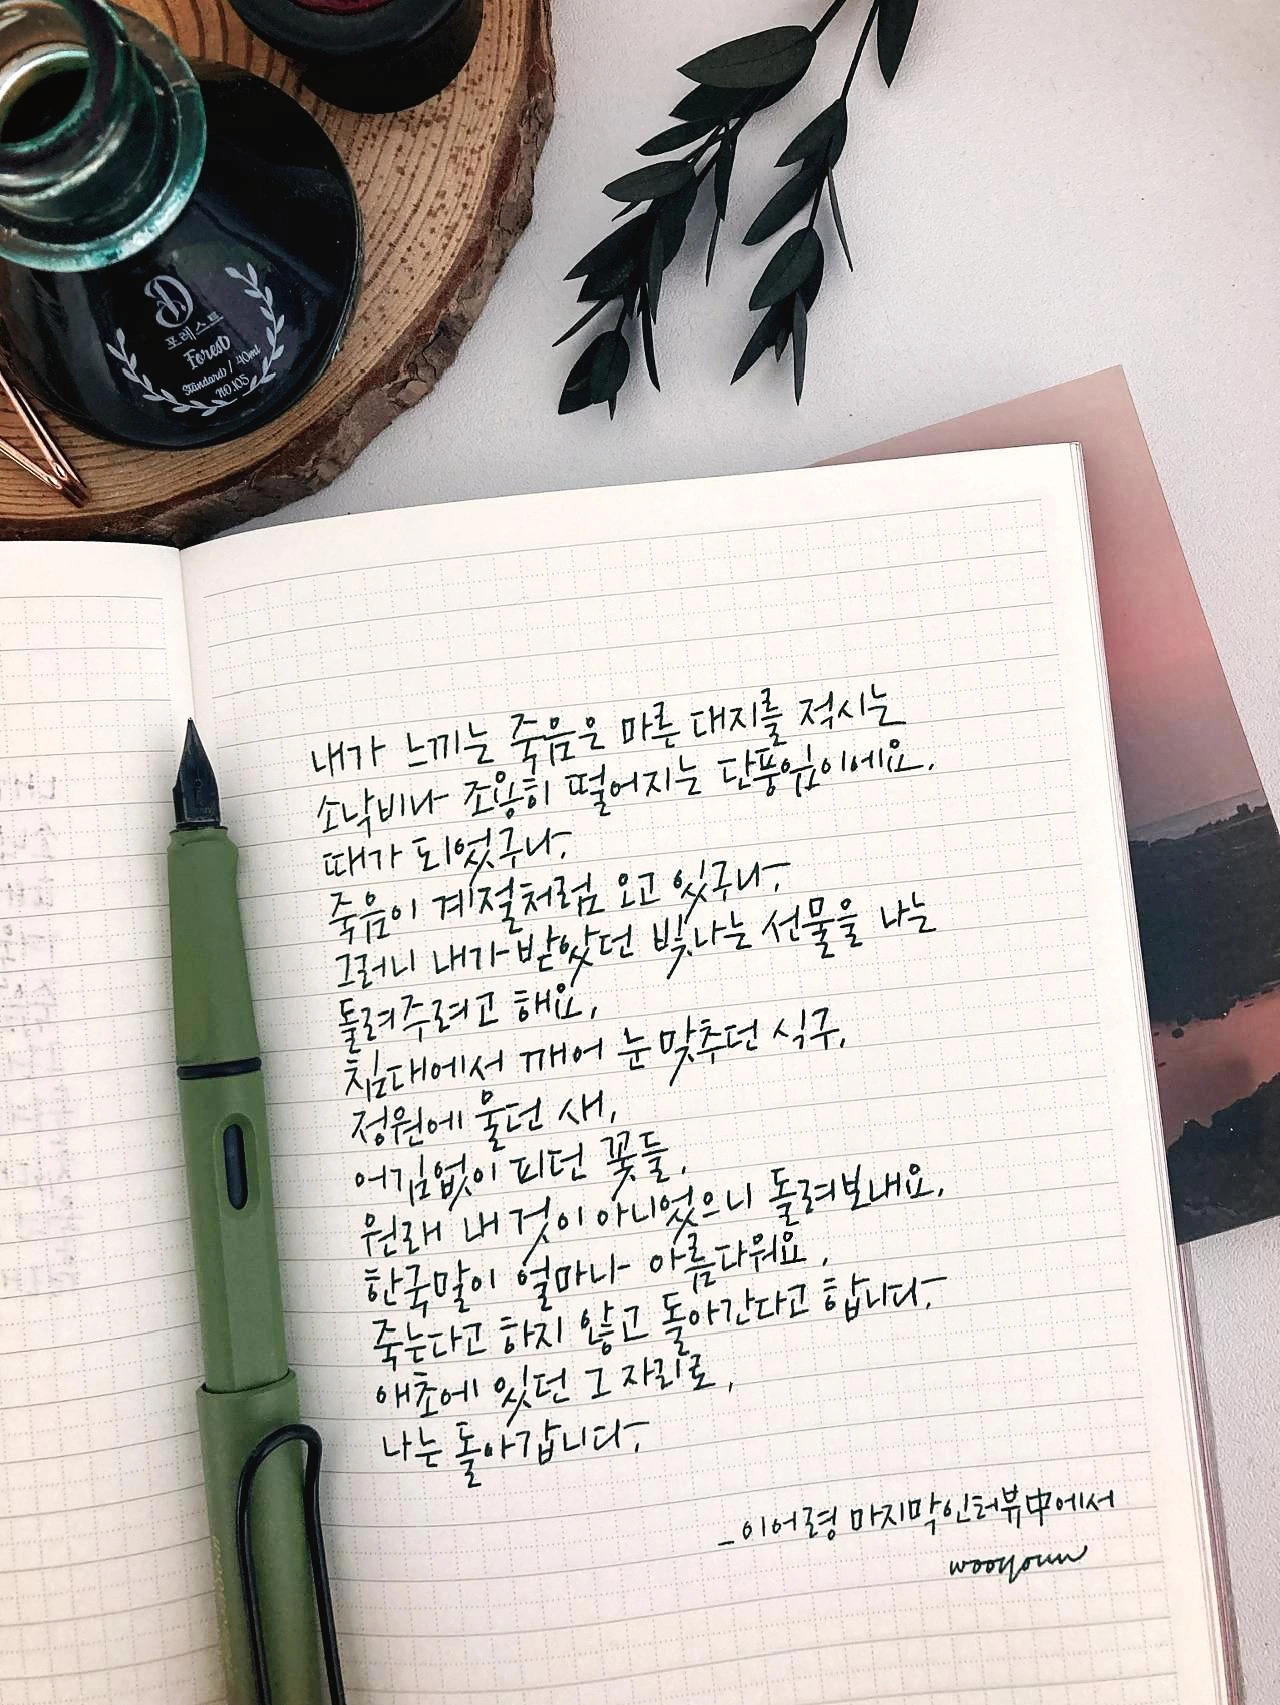 포레스트
Forest
Standard / 40ml
NO.105
내가 느끼는 죽음은 마른 대지를 적시는
소낙비나 조용히 떨어지는 단풍잎이에요.
때가 되었구나.
죽음이 계절처럼 오고 있구나.
그러니 내가 받았던 빛나는 선물을 나는
돌려주려고 해요.
침대에서 깨어 눈 맞추던 식구,
정원에 울던 새,
어김없이 피던 꽃들.
원래 내 것이 아니었으니 돌려보내요.
한국말이 얼마나 아름다워요.
죽는다고 하지 않고 돌아간다고 합니다.
애초에 있던 그 자리로,
나는 돌아갑니다.
_이어령 마지막인터뷰中에서
wooyoun